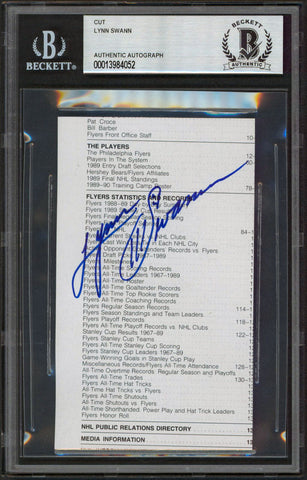 BECKETT
CUT
LYNN SWANN
AUTHENTIC AUTOGRAPH
00013984052
BECKETT
AUTHENTIC
Pat Croce
Bill Barber
Flyers Front Office Staff 10
THE PLAYERS
The Philadelphia Flyers
Players In The System
1989 Entry Draft Selections
Hershey Bears/Flyers Affiliates
1989 Final NHL Standings
1989-90 Training Camp Roster
FLYERS STATISTICS AND RECORDS
Flyers 1988-89
84-
in Each NHL City
Records vs. Flyers
1967-1989
All-Time Scoring Records
1967-1989
All-Time Roster
All-Time Goaltender Records
Flyers Top Rookie Scorers
Flyers All-Time Coaching Records
Flyers Regular Season Records
Flyers Season Standings and Team Leaders
Flyers Playoff Records
Flyers All-Time Playoff Records vs. NHL Clubs
Stanley Cup Results 1967-89
Flyers Stanley Cup Teams
Flyers All-Time Stanley Cup Scoring
Flyers Stanley Cup Leaders 1967-89
Game Winning Goals in Stanley Cup Play
Miscellaneous Records/Flyers All-Time Attendance 126-
All-Time Overtime Records: Regular Season and Playoffs
Flyers All-Time Trades 130-
Flyers All-Time Hat Tricks
All-Time Hat Tricks vs. Flyers
Flyers All-Time Shutouts
All-Time Shutouts vs. Flyers
All-Time Shorthanded, Power Play and Hat Trick Leaders
Flyers Honor Roll
NHL PUBLIC RELATIONS DIRECTORY
MEDIA INFORMATION
Lynn Swann